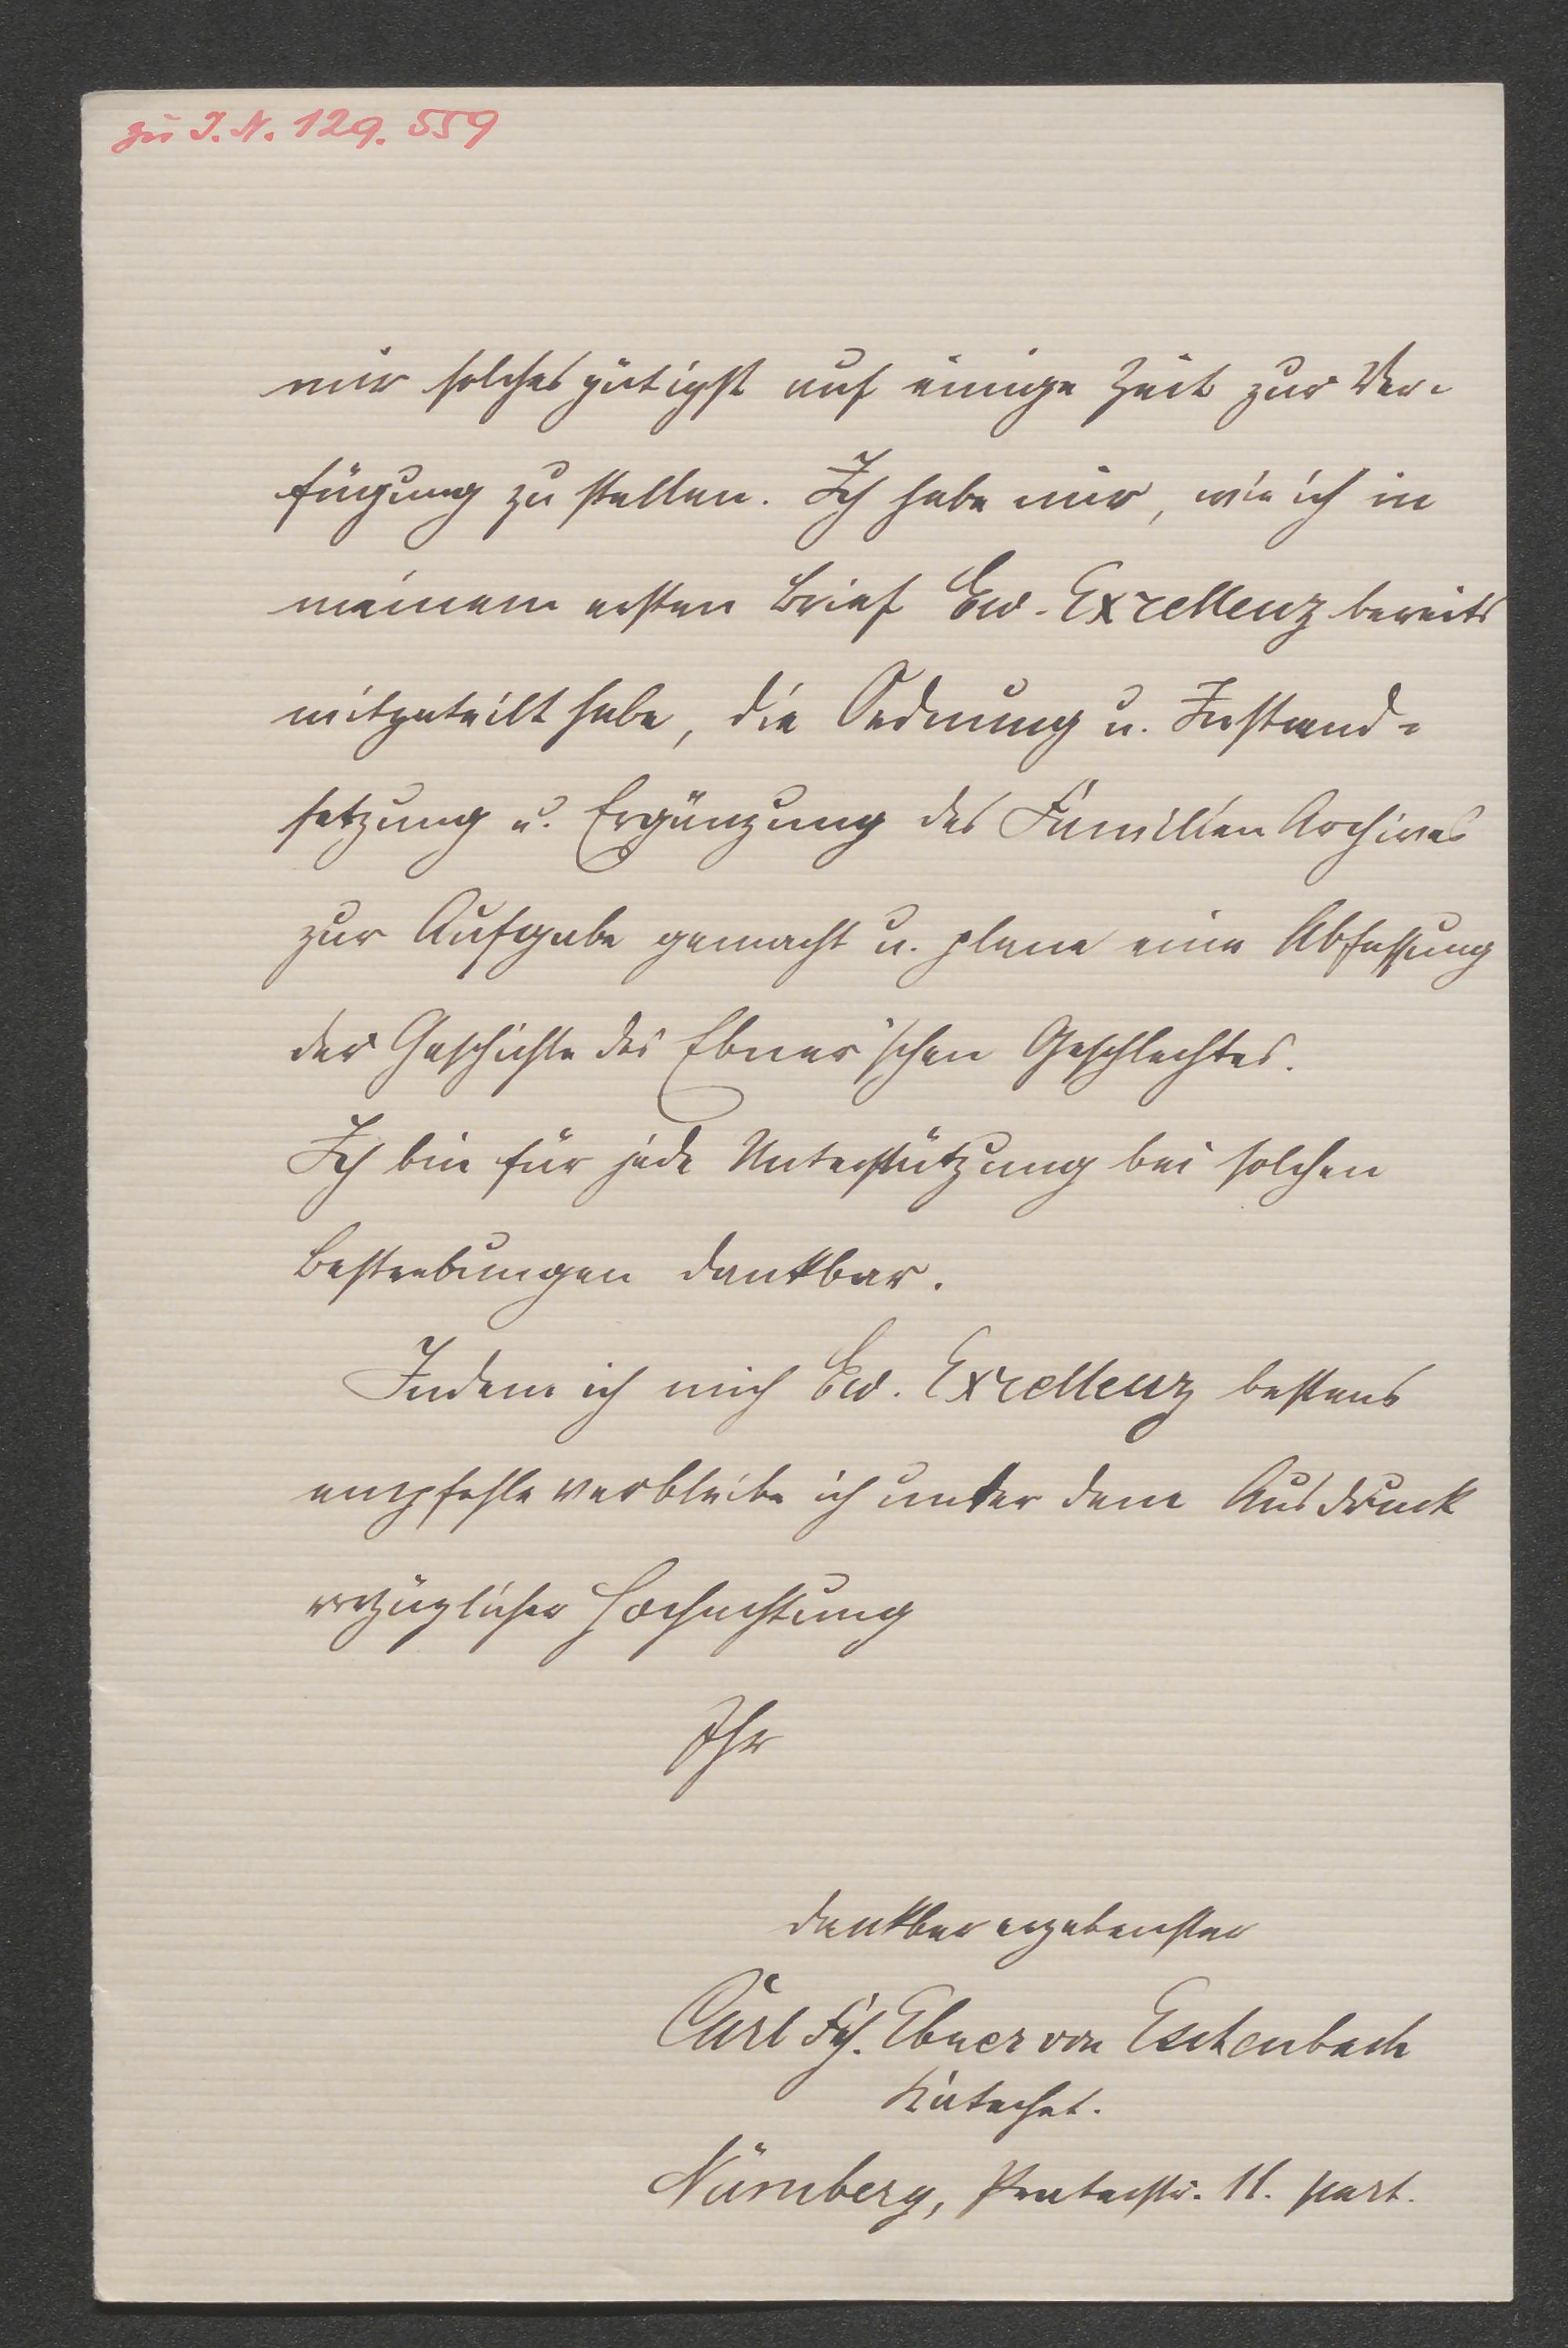 zu I. N. 129.559
mir solches gütigst auf einige Zeit zur Ver-
fügung zu stellen. Ich habe mir, wie ich in
meinem ersten Brief Ew. Excellenz bereits
mitgeteilt habe, die Ordnung u. Instand-
setzung u. Ergänzung des Familien Archives
zur Aufgabe gemacht u. plane eine Abfassung
der Geschichte des Ebner'schen Geschlechtes.
Ich bin für jede Unterstützung bei solchen
Bestrebungen dankbar.
Indem ich mich Ew. Excellenz bestens
empfehle verbleibe ich unter dem Ausdruck
vorzüglicher Hochachtung
Ihr
dankbar ergebenster
Carl Fh. Ebner von Eschenbach
Katechet.
Nürnberg, Praterstr. 11. part.